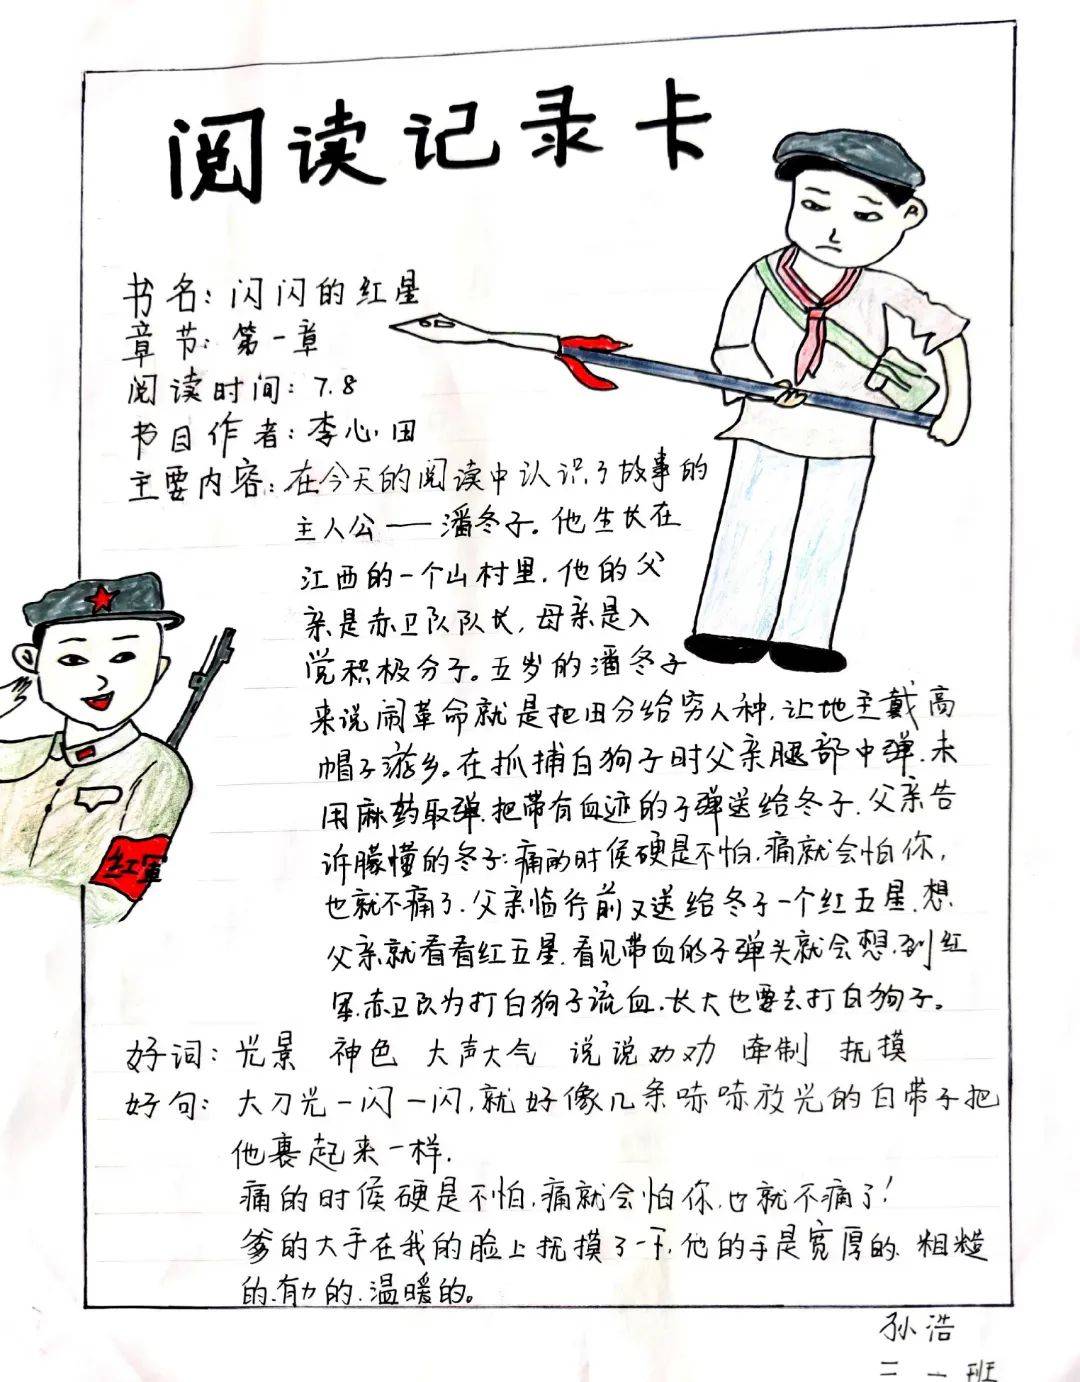 阅读记录卡
书名：闪闪的红星
章节：第一章
阅读时间：7.8
书目作者：李心田
主要内容：在今天的阅读中认识了故事的
主人公——潘冬子。他生长在
江西的一个山村里，他的父
亲是赤卫队队长，母亲是入
党积极分子。五岁的潘冬子
来说闹革命就是把田分给穷人种，让地主戴高
帽子游乡。在抓捕白狗子时父亲腿部中弹，未
用麻药取弹，把带有血迹的子弹送给冬子，父亲告
诉朦懂的冬子：痛的时候硬是不怕，痛就会怕你，
也就不痛了，父亲临行前又送给冬子一个红五星，想
父亲就看看红五星，看见带血的子弹头就会想到红
军，赤卫队为打白狗子流血，长大也要去打白狗子。
好词：光景 神色 大声大气 说说劝劝 牵制 抚摸
好句：大刀光一闪一闪，就好像几条哧哧放光的白带子把
他裹起来一样，
痛的时候硬是不怕，痛就会怕你，也就不痛了！
爹的大手在我的脸上抚摸了一下，他的手是宽厚的、粗糙
的、有力的、温暖的。
红軍
孙浩
三一班